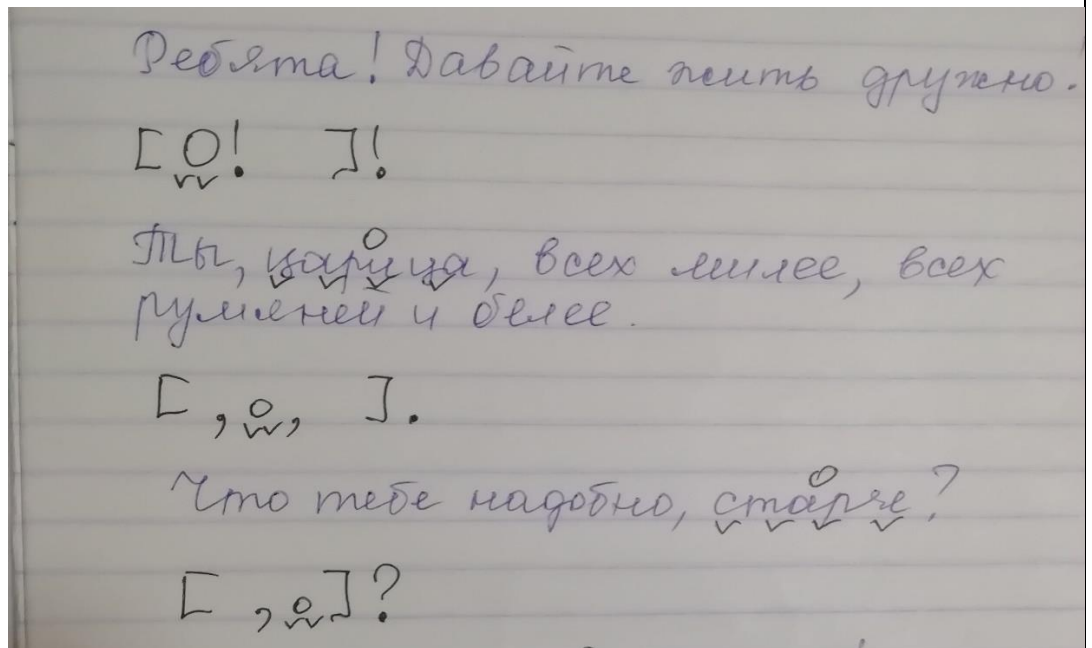 Ребята! Давайте жить дружно.
[О! ]!
Ты, царица, всех милее, всех
румяней и белее.
[ , о, ].
Что тебе надобно, старче?
[ , о]?